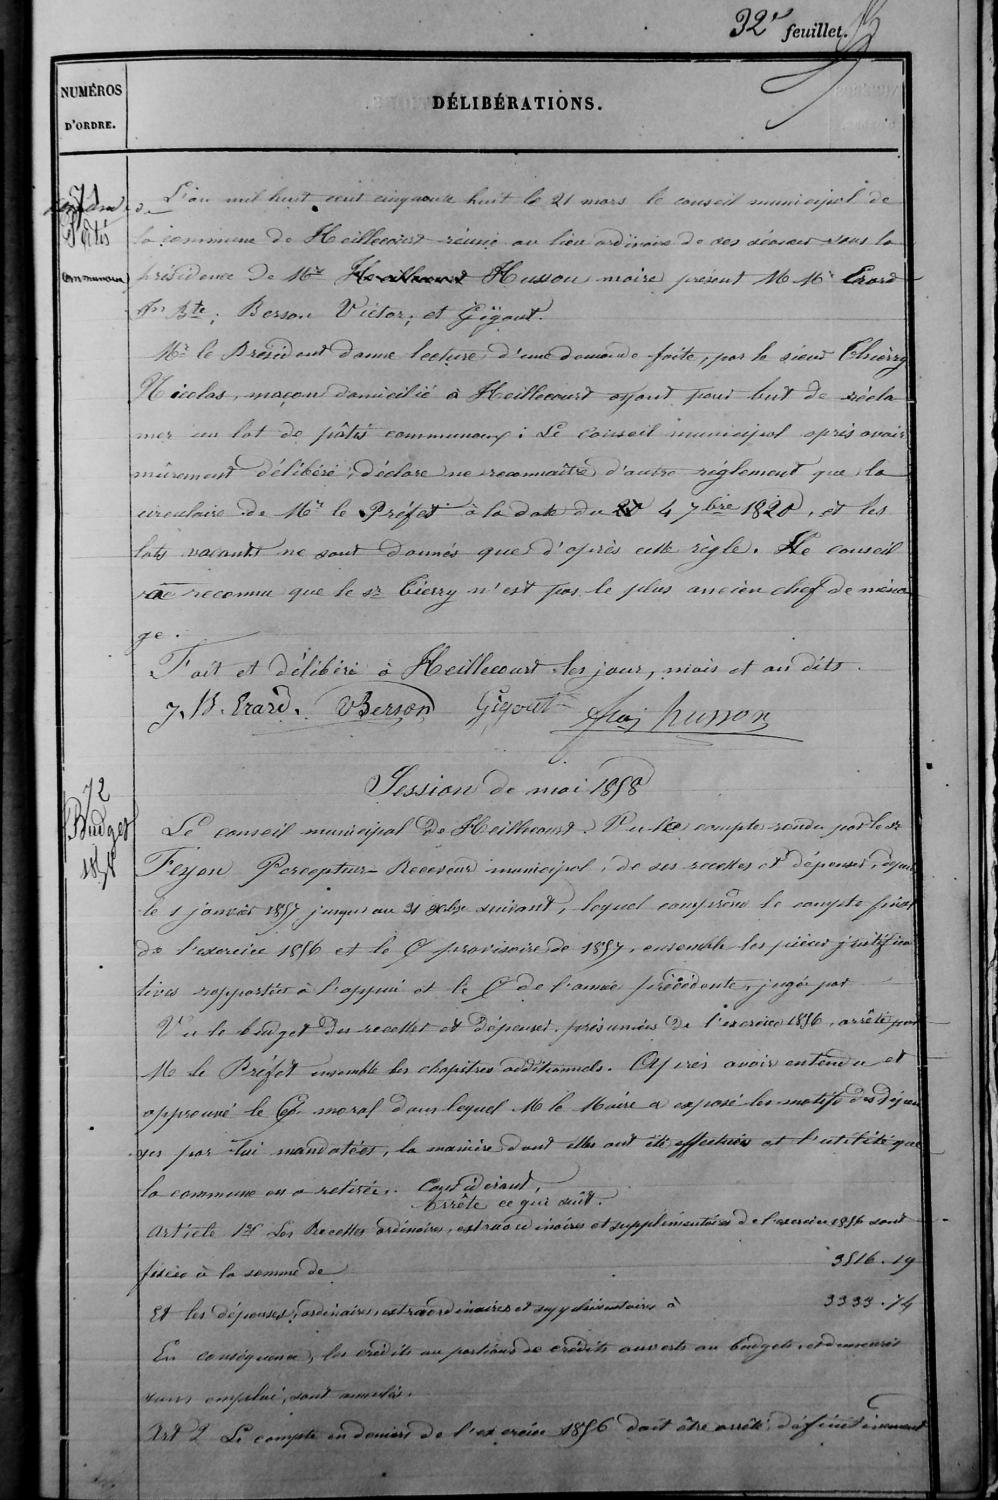 32e feuillet.
NUMÉROS D'ORDRE.
DÉLIBÉRATIONS.
71
Demande de
Pâtis
Communaux
L'an mil huit cent cinquante huit le 21 mars le conseil municipal de
la commune de Heillecourt réunie au lieu ordinaire de ses séances sous la
présidence de Mr Husson maire, présent M Mrs Erard
Jn Bte; Berson Victor; et Gigout.
Mr le Président donne lecture d'une demande faite, par le sieur Thierry
Nicolas, maçon domicilié à Heillecourt ayant pour but de récla
mer un lot de pâtis communaux; Le Conseil municipal après avoir
mûrement délibéré, déclare ne reconnaître d'autre réglement que la
circulaire de Mr le Préfet à la date du 4 7bre 1820, et les
lots vacants ne sont donnés que d'après cette règle. Le conseil
a reconnu que le sr Tierry n'est pas le plus ancien chef de ména
ge.
Fait et délibéré à Heillecourt les jour, mois et an dits.
J. B. Erard. VBerson Gigout Husson
Session de mai 1858
72
Budget
1858
Le conseil municipal de Heillecourt. Vu le compte rendu par le sr
Feyon Percepteur-Receveur municipal, de ses recettes et dépenses, depuis
le 1 janvier 1857 jusqu'au 31 Xbre suivant, lequel comprend le compte final
de l'exercice 1856 et le Cte provisoire de 1857, ensemble les pièces justifica
tives rapportées à l'appui et le Cte de l'année précédente, jugé par
Vu le budget des recettes et dépenses présumées de l'exercice 1856, arrêté par
M le Préfet ensemble les chapitres additionnels. Après avoir entendu et
approuvé le Cte moral dans lequel M le Maire a exposé les motifs des dépen
ses par lui mandatées, la manière dont elles ont été effectuées et l'utilité que
la commune en a retirée. Considérant,
Arrête ce qui suit.
Article 1er Les Recettes ordinaires, extraordinaires et supplémentaires de l'exercice 1856 sont
fixées à la somme de 3516.19
Et les dépenses, ordinaires, extraordinaires et supplémentaires à 3333.74
En conséquence, les crédits ou portions de crédits ouverts au budget, et demeurés
sans emploi, sont annulés.
Art 2 Le compte en deniers de l'exercice 1856 doit être arrêté définitivement